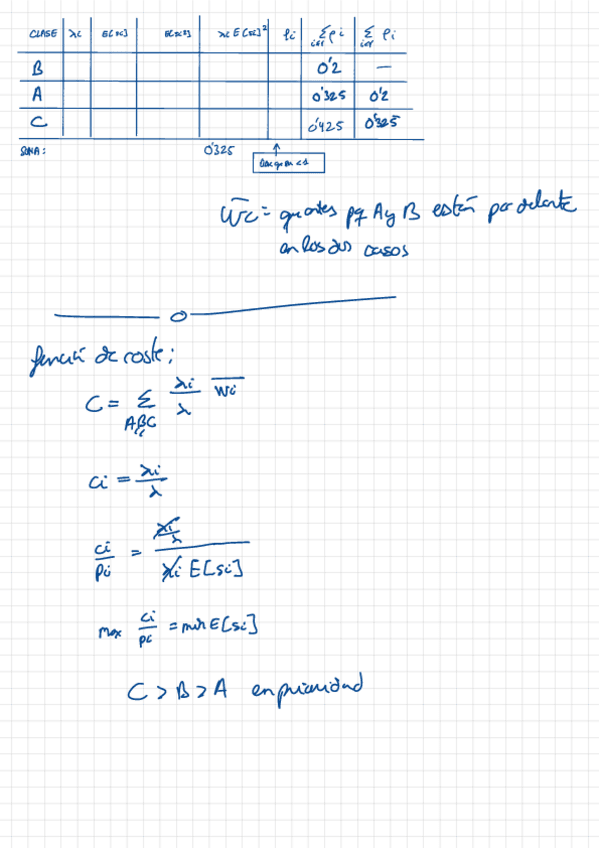 CLASE λi E[si] E[si²] λi E[si]² ρi Σ ρi Σ ρi
B 0'2 —
A 0'325 0'2
C 0'425 0'325
SUMA: 0'325
W̄c = que antes pq A y B están por delante
en los dos casos
función de coste:
C = Σ λi/λ W̄i
ABC
ci = λi/λ
ci/ρi = (λi/λ)/(λi E[si])
max ci/ρi = min E[si]
C > B > A en prioridad